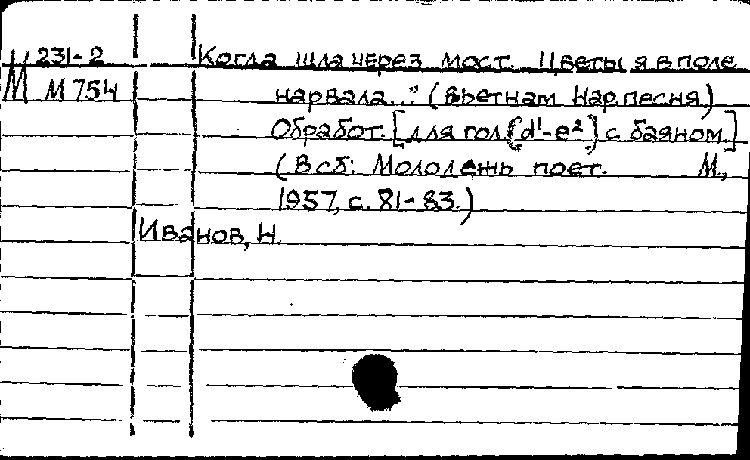 М 231-2
М 754
Когда шла через мост. Цветы я в поле
нарвала..." (Вьетнам нар. песня)
Обработ. [для гол. (d¹-e²) с баяном.]
(В сб: Молодежь поет. М.,
1957, с. 81-83.)
Иванов, Н.